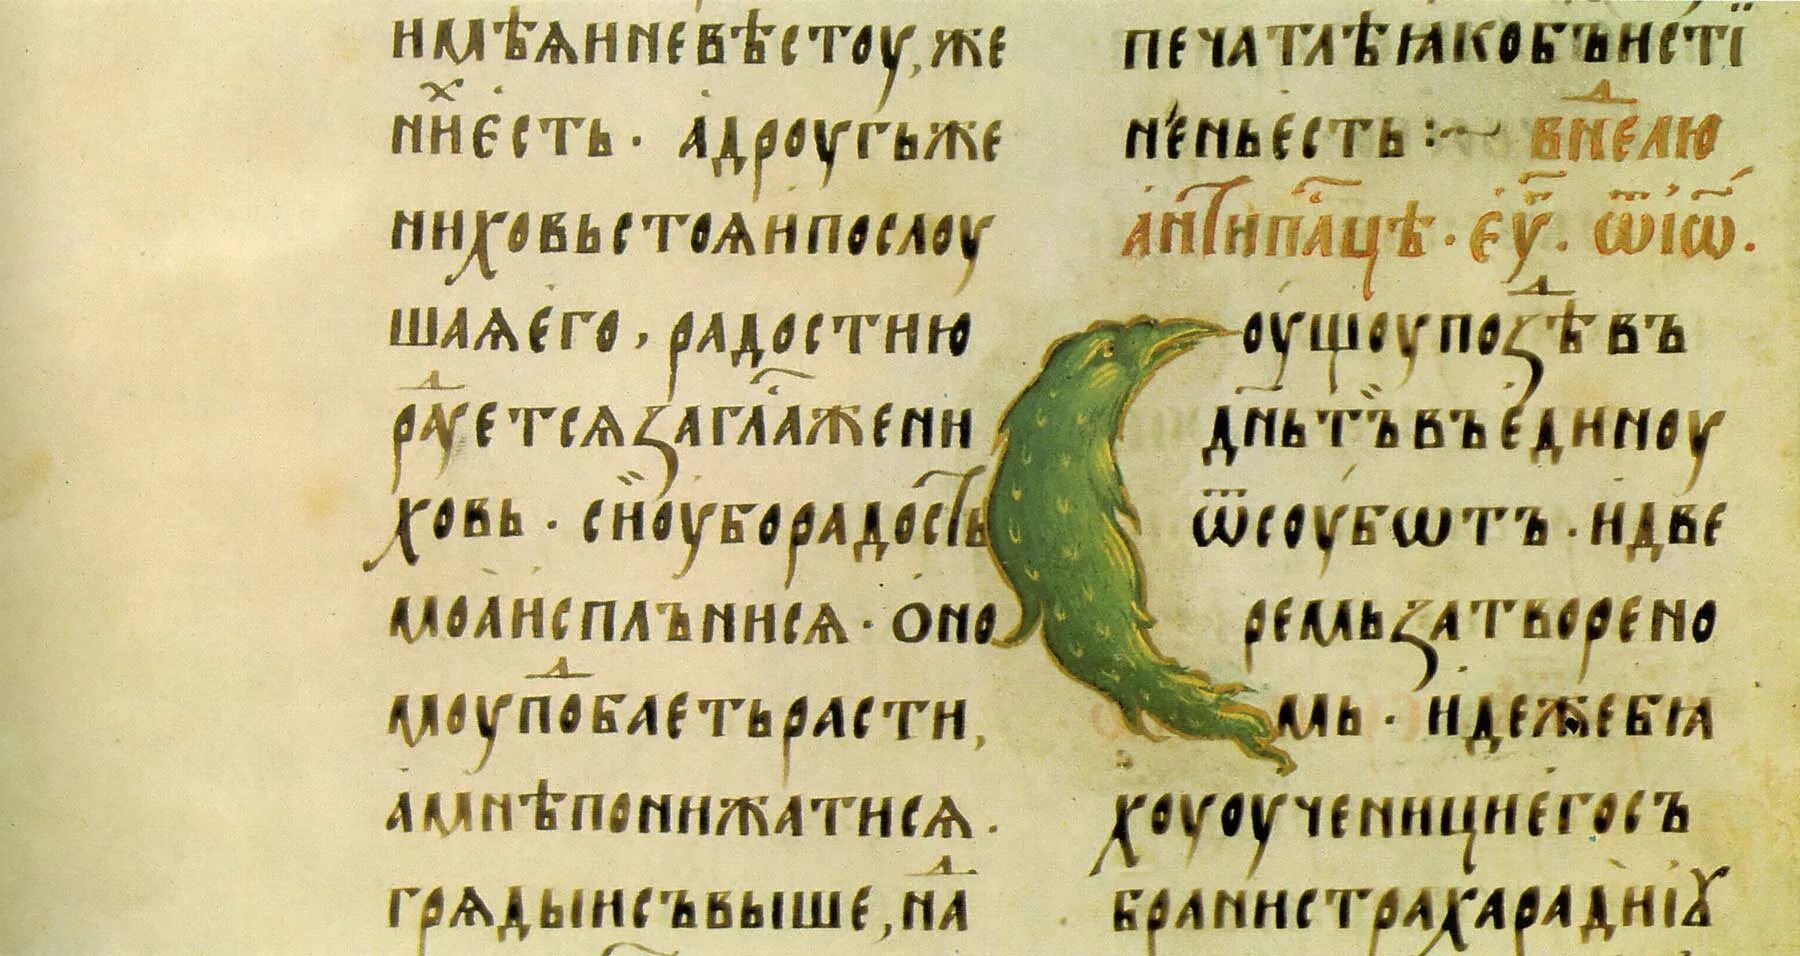 имѣꙗи невѣстоу, же
ниⷯ есть · а дроугъ же
ниховъ стоꙗ и послоу
шаѧ его, радостию
раⷣуетсѧ за гла҃ женн
ховь · си҅ оубо радость
моа исплънисѧ · оно
моу поⷣбаетъ расти,
а мнѣ понижатисѧ ·
грѧдыи съвыше, наⷣ
печатлѣ ꙗко бъ исті
ненъ есть :~ в неⷣлю
антипасцѣ · еѵ҃ · ѿ іѡ҃ ·
Соущоу позⷣѣ въ
д҃нь тъ въ единоу
ѿ соубѡтъ · и две
ремь затворено
мь · идеже бѧ
хоу оученици его съ
брани страха ради ію